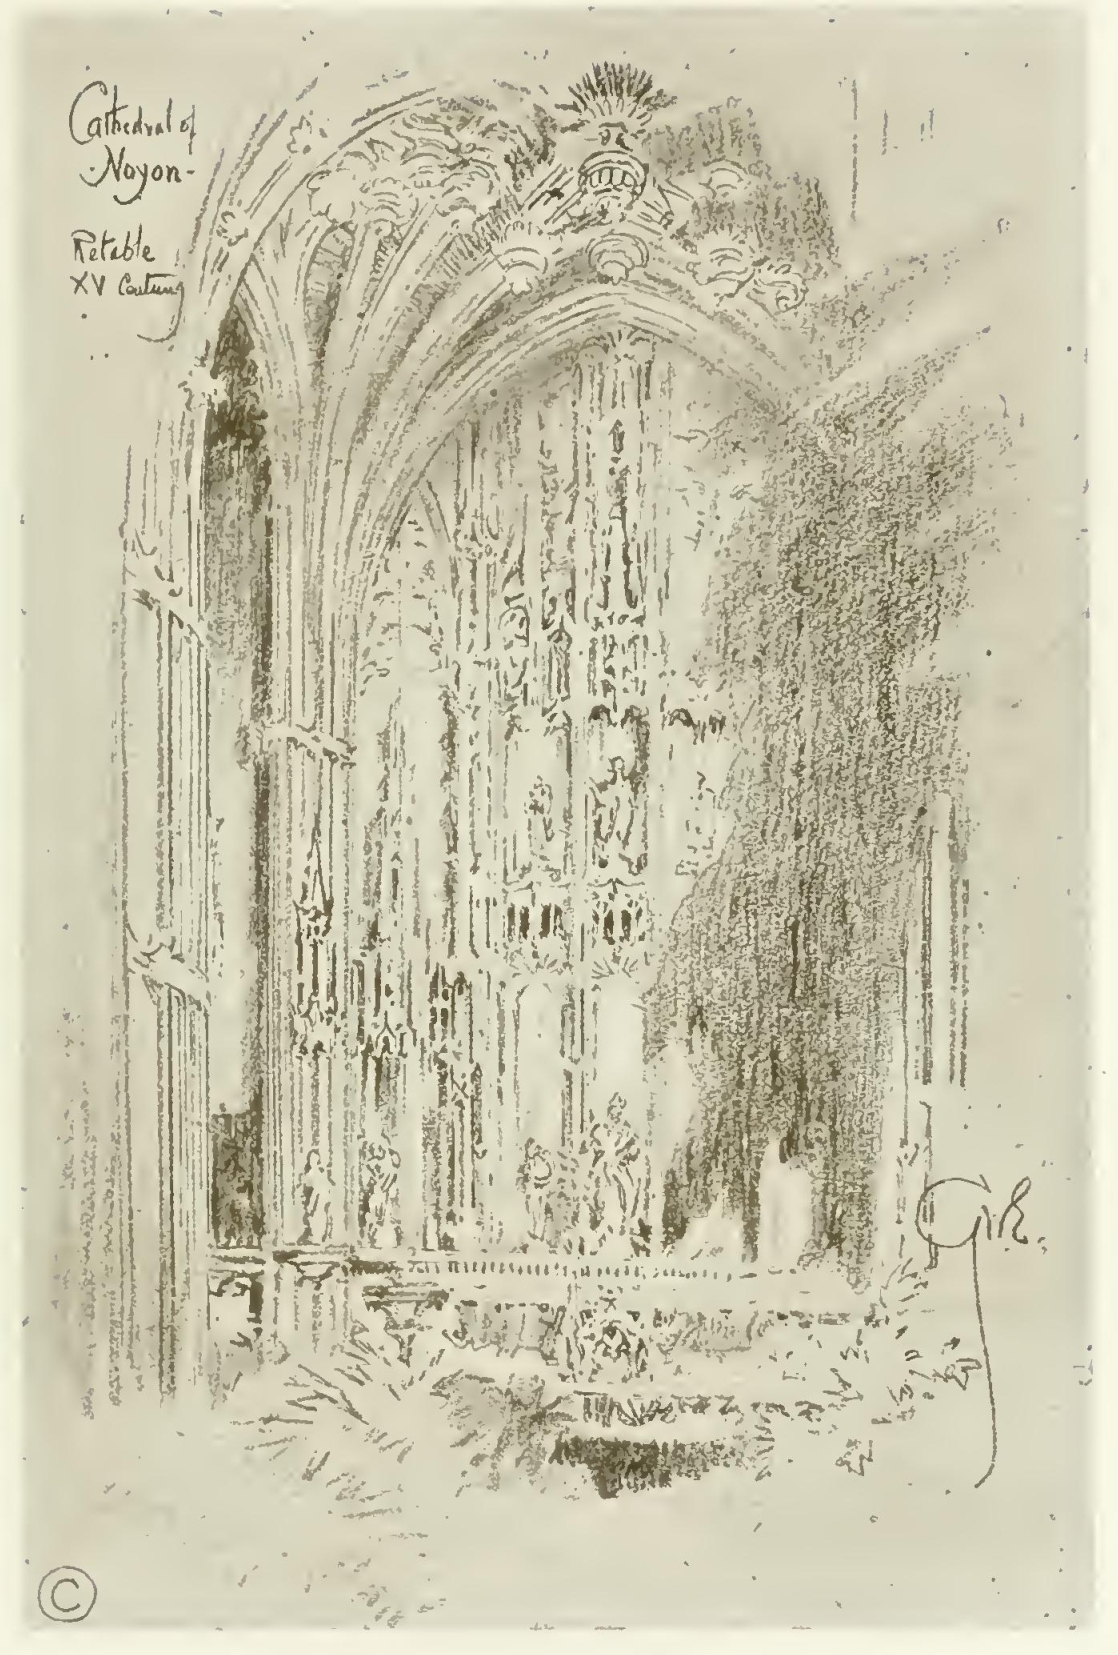 Cathedral of
-Noyon-
Retable
XV Century
G.R.
©